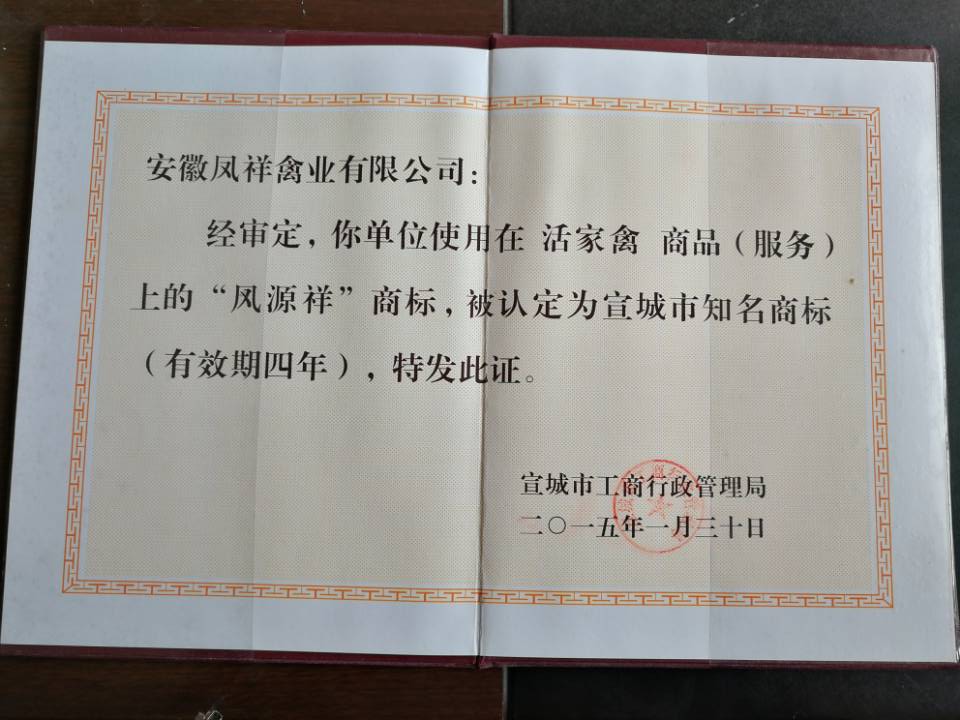 安徽凤祥禽业有限公司：
经审定，你单位使用在 活家禽 商品（服务）
上的“凤源祥”商标，被认定为宣城市知名商标
（有效期四年），特发此证。
宣城市工商行政管理局
二〇一五年一月三十日